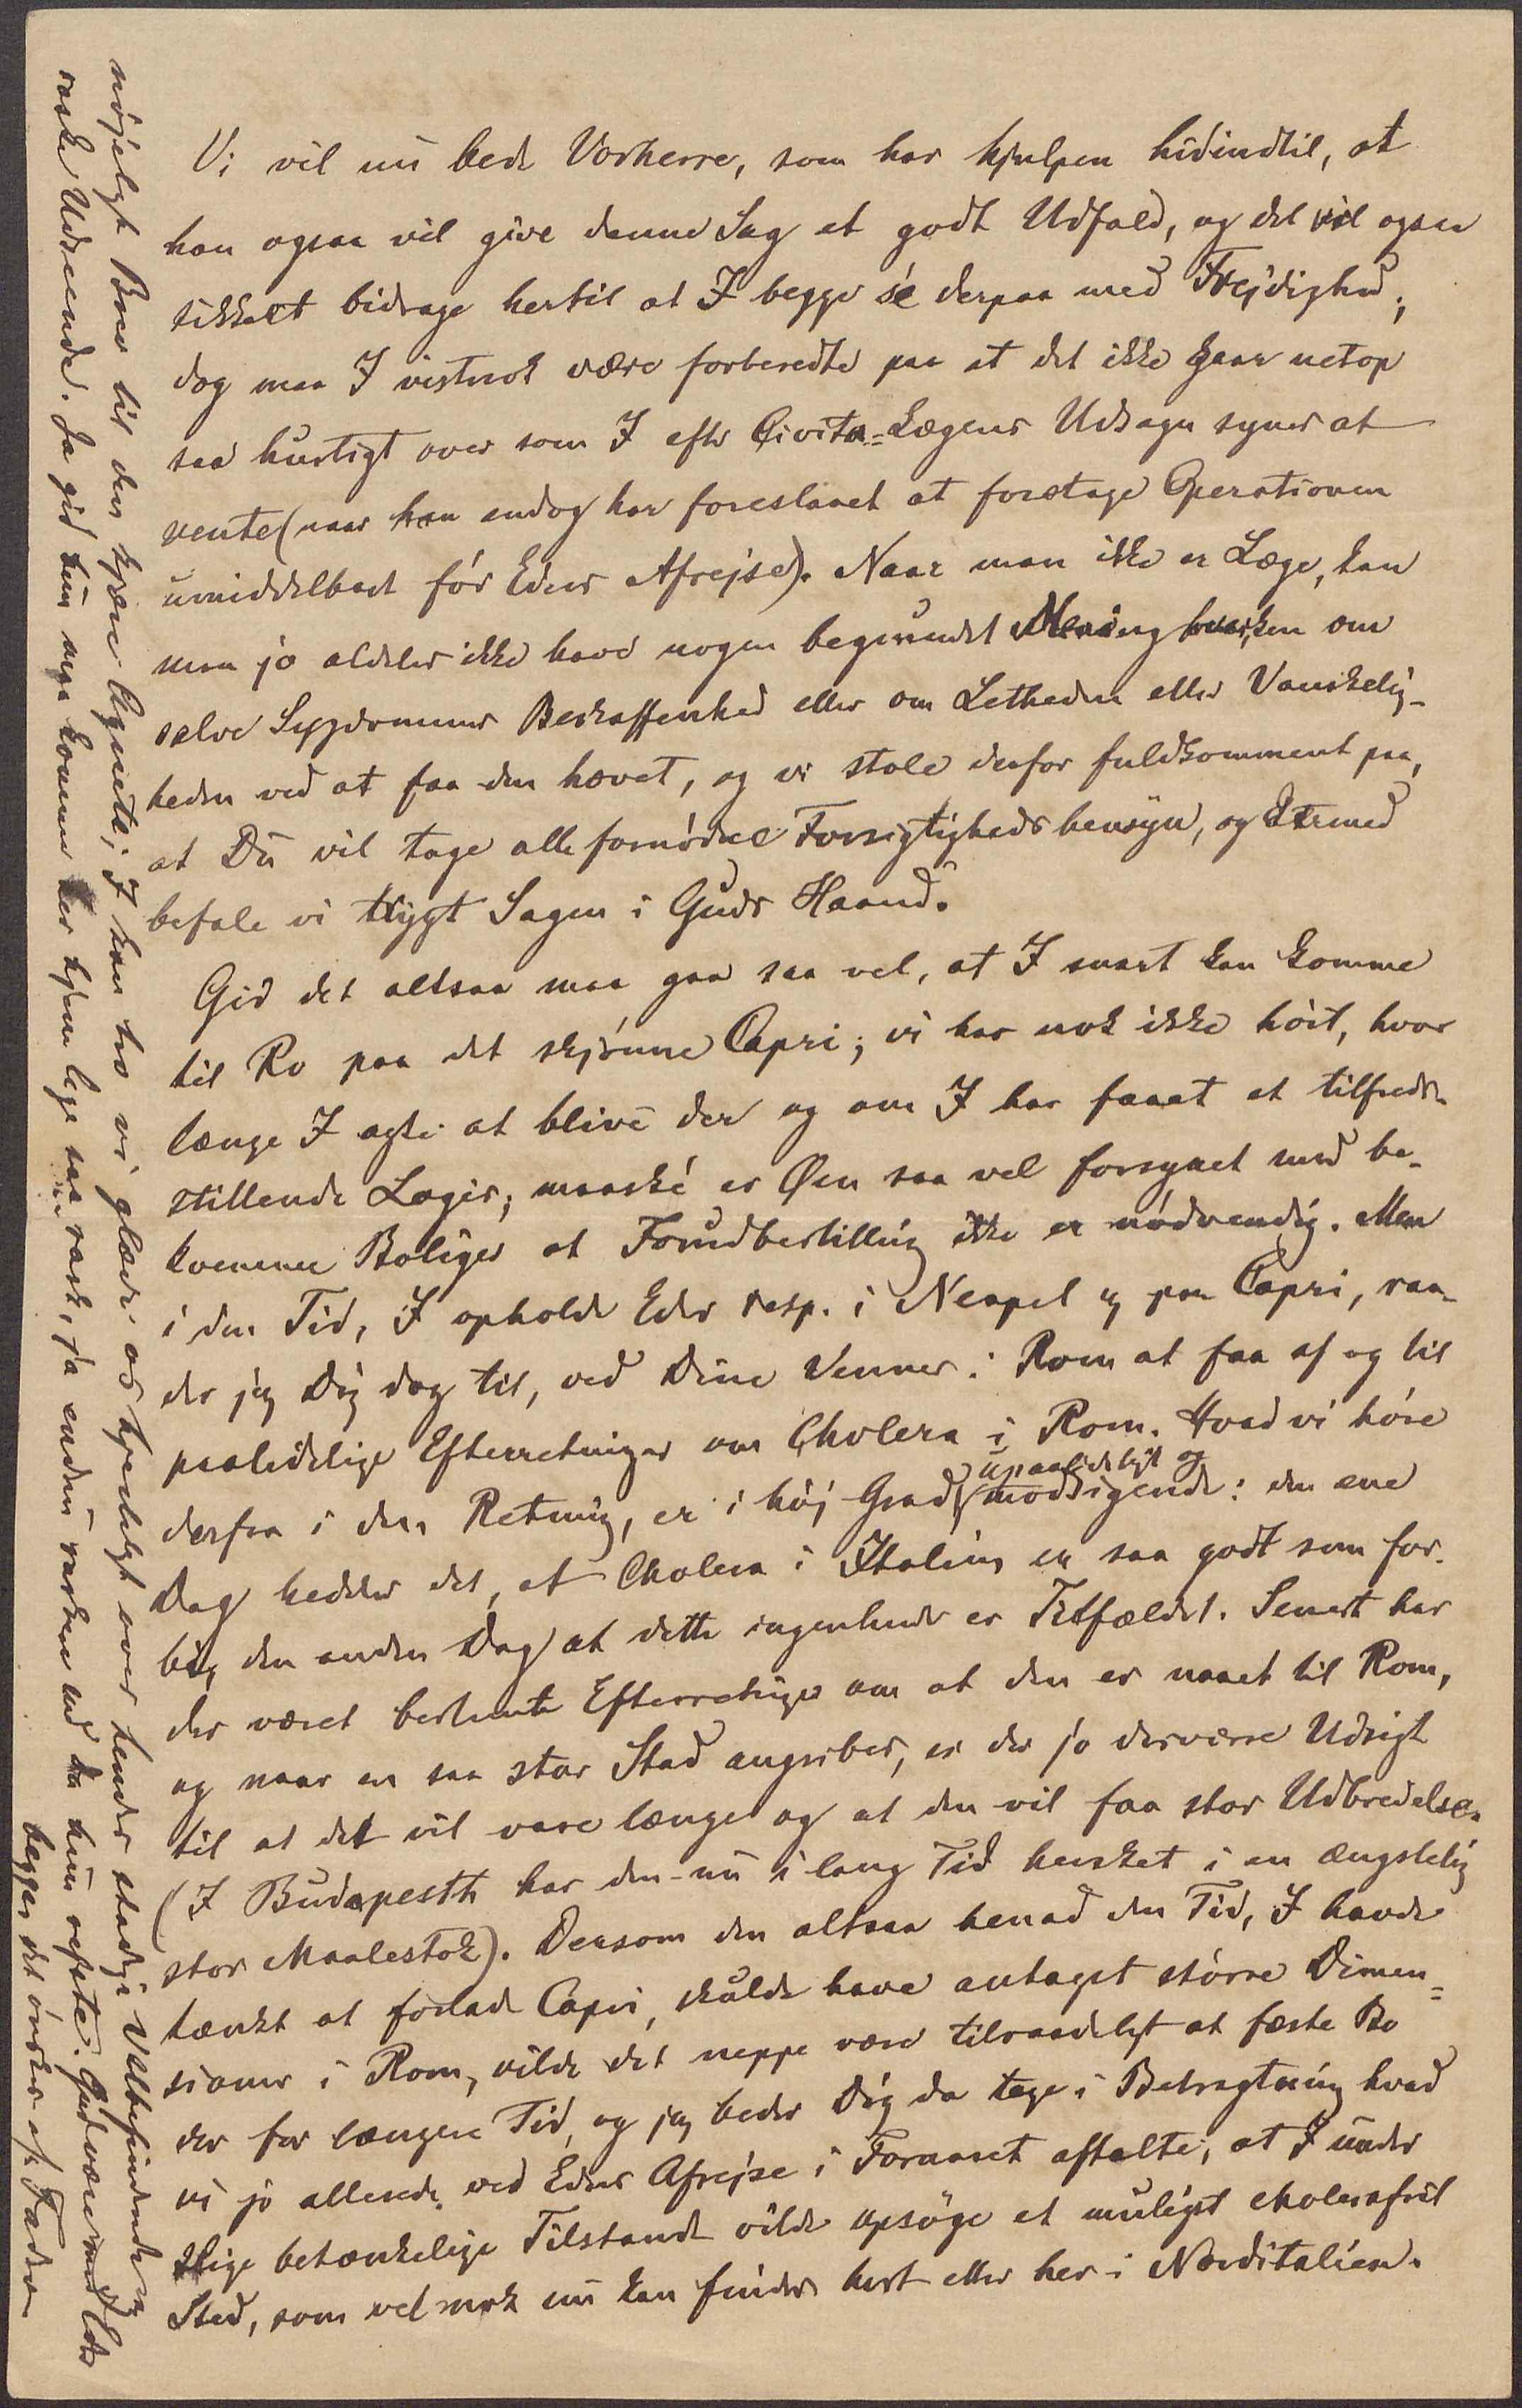 Vi vil nu bede Vorherre, som har hjulpen hidindtil, at
han ogsaa vil give denne Sag et godt Udfald, og det vil ogsaa
sikkert bidrage hertil at I begge sé derpaa med Frejdighed;
dog maa I vistnok være forberedte paa at det ikke gaar netop
saa hurtigt over som I efter Civita-Lægens Udsagn synes at
vente (naar han endog har foreslaaet at foretage Operationen
umiddelbart før Eders Afrejse). Naar man ikke er Læge, kan
man jo aldeles ikke have nogen begrundet Mening hverken om
selve Sygdommens Beskaffenhed eller om Letheden eller Vanskelig-
heden ved at faa den hævet, og vi stole derfor fuldkomment paa,
at Du vil tage alle fornødne Forsigtighedshensyn, og dermed
befale vi trygt Sagen i Guds Haand.
Gid det altsaa maa gaa saa vel, at I snart kan komme
til Ro paa det skjønne Capri; vi har nok ikke hört, hvor
længe I agte at blive der og om I har faaet et tilfreds-
stillende Logis; maaské er Øen saa vel forsynet med be-
kvemme Boliger at Forudbestilling ikke er nødvendig. Men
i den Tid, I opholde Eder resp. i Neapel og paa Capri, raa-
der jeg Dig dog til, ved Dine Venner i Rom at faa af og til
paalidelige Efterretninger om Cholera i Rom. Hvad vi høre
derfra i den Retning, er i høj Grad upaalideligt og modsigende: den ene
Dag hedder det, at Cholera i Italien er saa godt som for-
bi, den anden Dag at dette ingenlunde er Tilfældet. Senest har
der været bestemte Efterretninger om at den er naaet til Rom,
og naar en saa stor Stad angribes, er der jo desværre Udsigt
til at det vil vare længe og at den vil faa stor Udbredelse.
(I Budapesth har den nu i lang Tid hersket i en ængstelig
stor Maalestok). Dersom den altsaa henad den Tid, I havde
tænkt at forlade Capri, skulde have antaget större Dimen-
sioner i Rom, vilde det neppe være tilraadeligt at fæste Bo
der for længere Tid, og jeg beder Dig da tage i Betragtning hvad
vi jo allerede ved Eders Afrejse i Foraaret aftalte, at I under
slige betænkelige Tilstande vilde opsøge et muligst cholerafrit
Sted, som vel nok nu kan findes hist eller her i Norditalien.
nöjeligt Brev til den kjære Agnete; I kan tro vi glæde os hjerteligt over hendes stadige Velbefindende og
raske Udseende. Ja gid hun maa komme her hjem lige saa rask, ja endnu raskere end da hun rejste. Gud være med Eder
begge, det ønsker af Fader